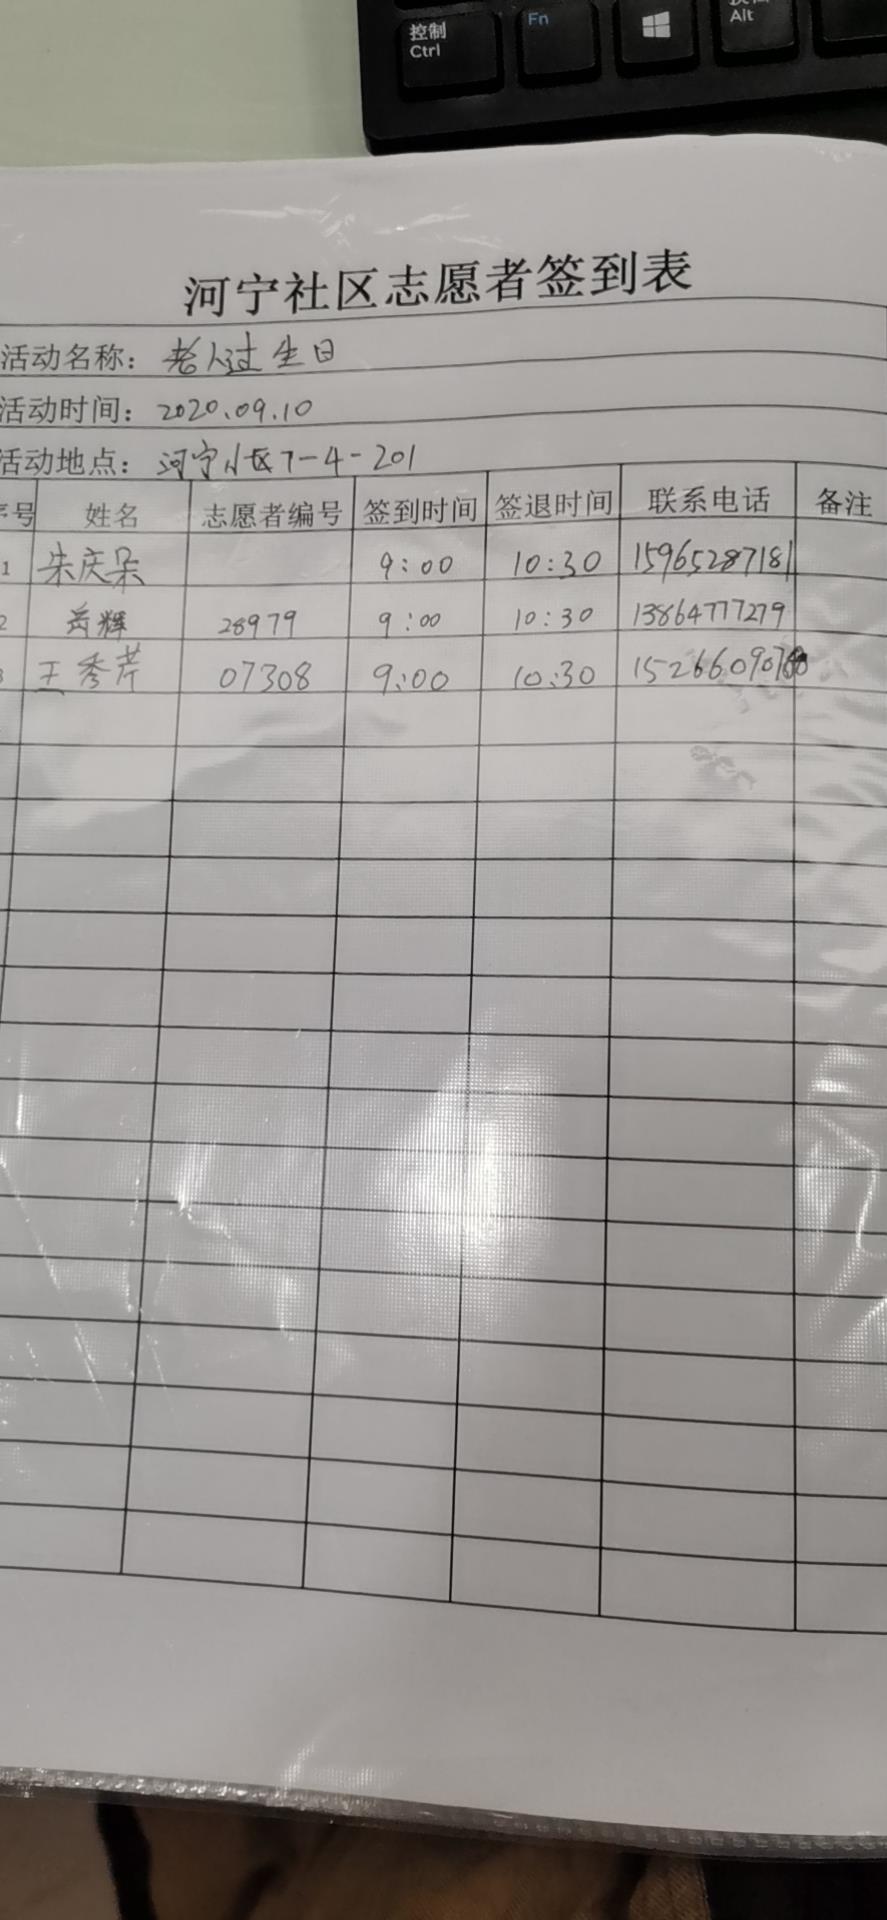 控制
Ctrl
Fn
Alt
河宁社区志愿者签到表
活动名称：老人过生日
活动时间：2020.09.10
活动地点：河宁小区7-4-201
序号 姓名 志愿者编号 签到时间 签退时间 联系电话 备注
1 朱庆朵 9:00 10:30 15965287181
2 苗辉 28979 9:00 10:30 13864777279
3 王秀芹 07308 9:00 10:30